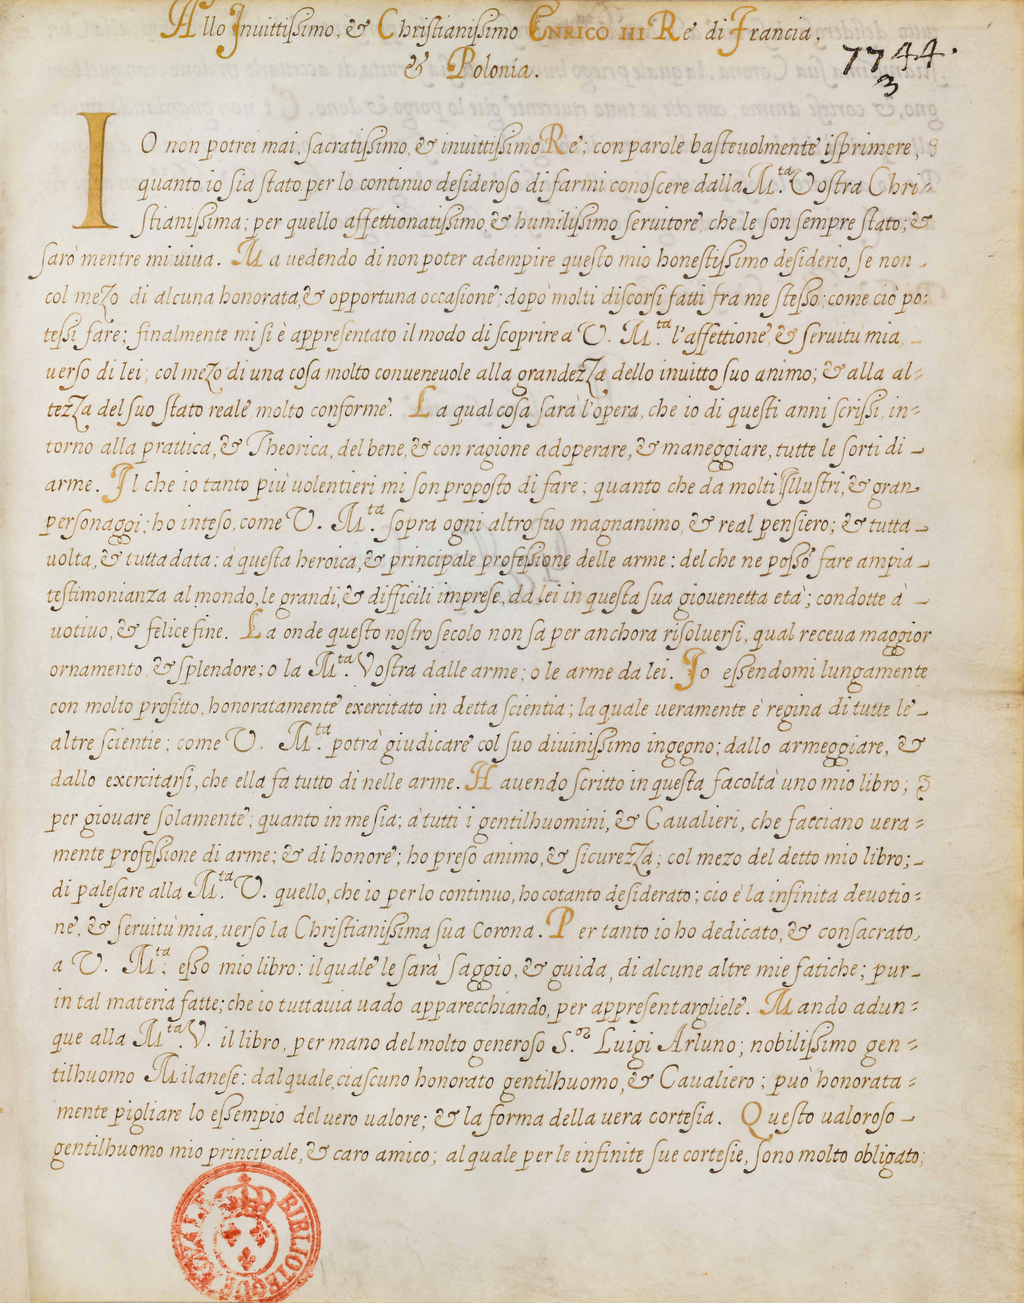 Allo Inuittissimo, & Christianissimo ENRICO III Re di Francia.
& Polonia.
7744.
3
IO non potrei mai, sacratissimo, & inuittissimo Re; con parole basteuolmente isprimere,
quanto io sia stato per lo continuo desideroso di farmi conoscere dalla M.ta Vostra Chri-
stianissima; per quello affettionatissimo, & humilissimo seruitore, che le son sempre stato; &
sarò mentre mi uiua. Ma uedendo di non poter adempire questo mio honestissimo desiderio, se non
col mezo di alcuna honorata, & opportuna occasione; dopò molti discorsi fatti fra me stesso; come ciò po-
tessi fare; finalmente mi si è appresentato il modo di scoprire a V. M.ta l'affettione, & seruitù mia,
uerso di lei; col mezo di una cosa molto conueneuole alla grandezza dello inuitto suo animo; & alla al-
tezza del suo stato reale molto conforme. La qual cosa sarà l'opera, che io di questi anni scrissi, in-
torno alla prattica, & Theorica, del bene, & con ragione adoperare, & maneggiare, tutte le sorti di
arme. Il che io tanto più uolentieri mi son proposto di fare; quanto che da molti illustri, & gran
personaggi; ho inteso, come V. M.ta sopra ogni altro suo magnanimo, & real pensiero; & tutta
uolta, & tutta data: à questa heroica, & principale professione delle arme: del che ne posso fare ampia
testimonianza al mondo, le grandi, & difficili imprese, da lei in questa sua giouenetta età; condotte à
uotiuo, & felice fine. La onde questo nostro secolo non sa per anchora risoluersi, qual receua maggior
ornamento, & splendore; o la M.ta Vostra dalle arme; o le arme da lei. Io essendomi lungamente
con molto profitto, honoratamente exercitato in detta scientia; la quale ueramente è regina di tutte le
altre scientie; come V. M.ta potrà giudicare col suo diuinissimo ingegno; dallo armeggiare, &
dallo exercitarsi, che ella fa tutto di nelle arme. Hauendo scritto in questa facoltà uno mio libro; &
per giouare solamente; quanto in me sia; à tutti i gentilhuomini, & Caualieri, che facciano uera-
mente professione di arme; & di honore; ho preso animo, & sicurezza; col mezo del detto mio libro;
di palesare alla M.ta V. quello, che io per lo continuo, ho cotanto desiderato; cio è la infinita deuotio-
ne, & seruitù mia, uerso la Christianissima sua Corona. Per tanto io ho dedicato, & consacrato
a V. M.ta; esso mio libro: il quale le sarà saggio, & guida, di alcune altre mie fatiche; pur
in tal materia fatte; che io tuttauia uado apparecchiando, per appresentargliele. Mando adun-
que alla M.ta V. il libro, per mano del molto generoso S.or Luigi Arluno; nobilissimo gen-
tilhuomo Milanese: dal quale, ciascuno honorato gentilhuomo, & Caualiero; può honorata-
mente pigliare lo essempio del uero ualore; & la forma della uera cortesia. Questo ualoroso
gentilhuomo mio principale, & caro amico; al quale per le infinite sue cortesie, sono molto obligato;
BIBLIOTEQUE ROYALE